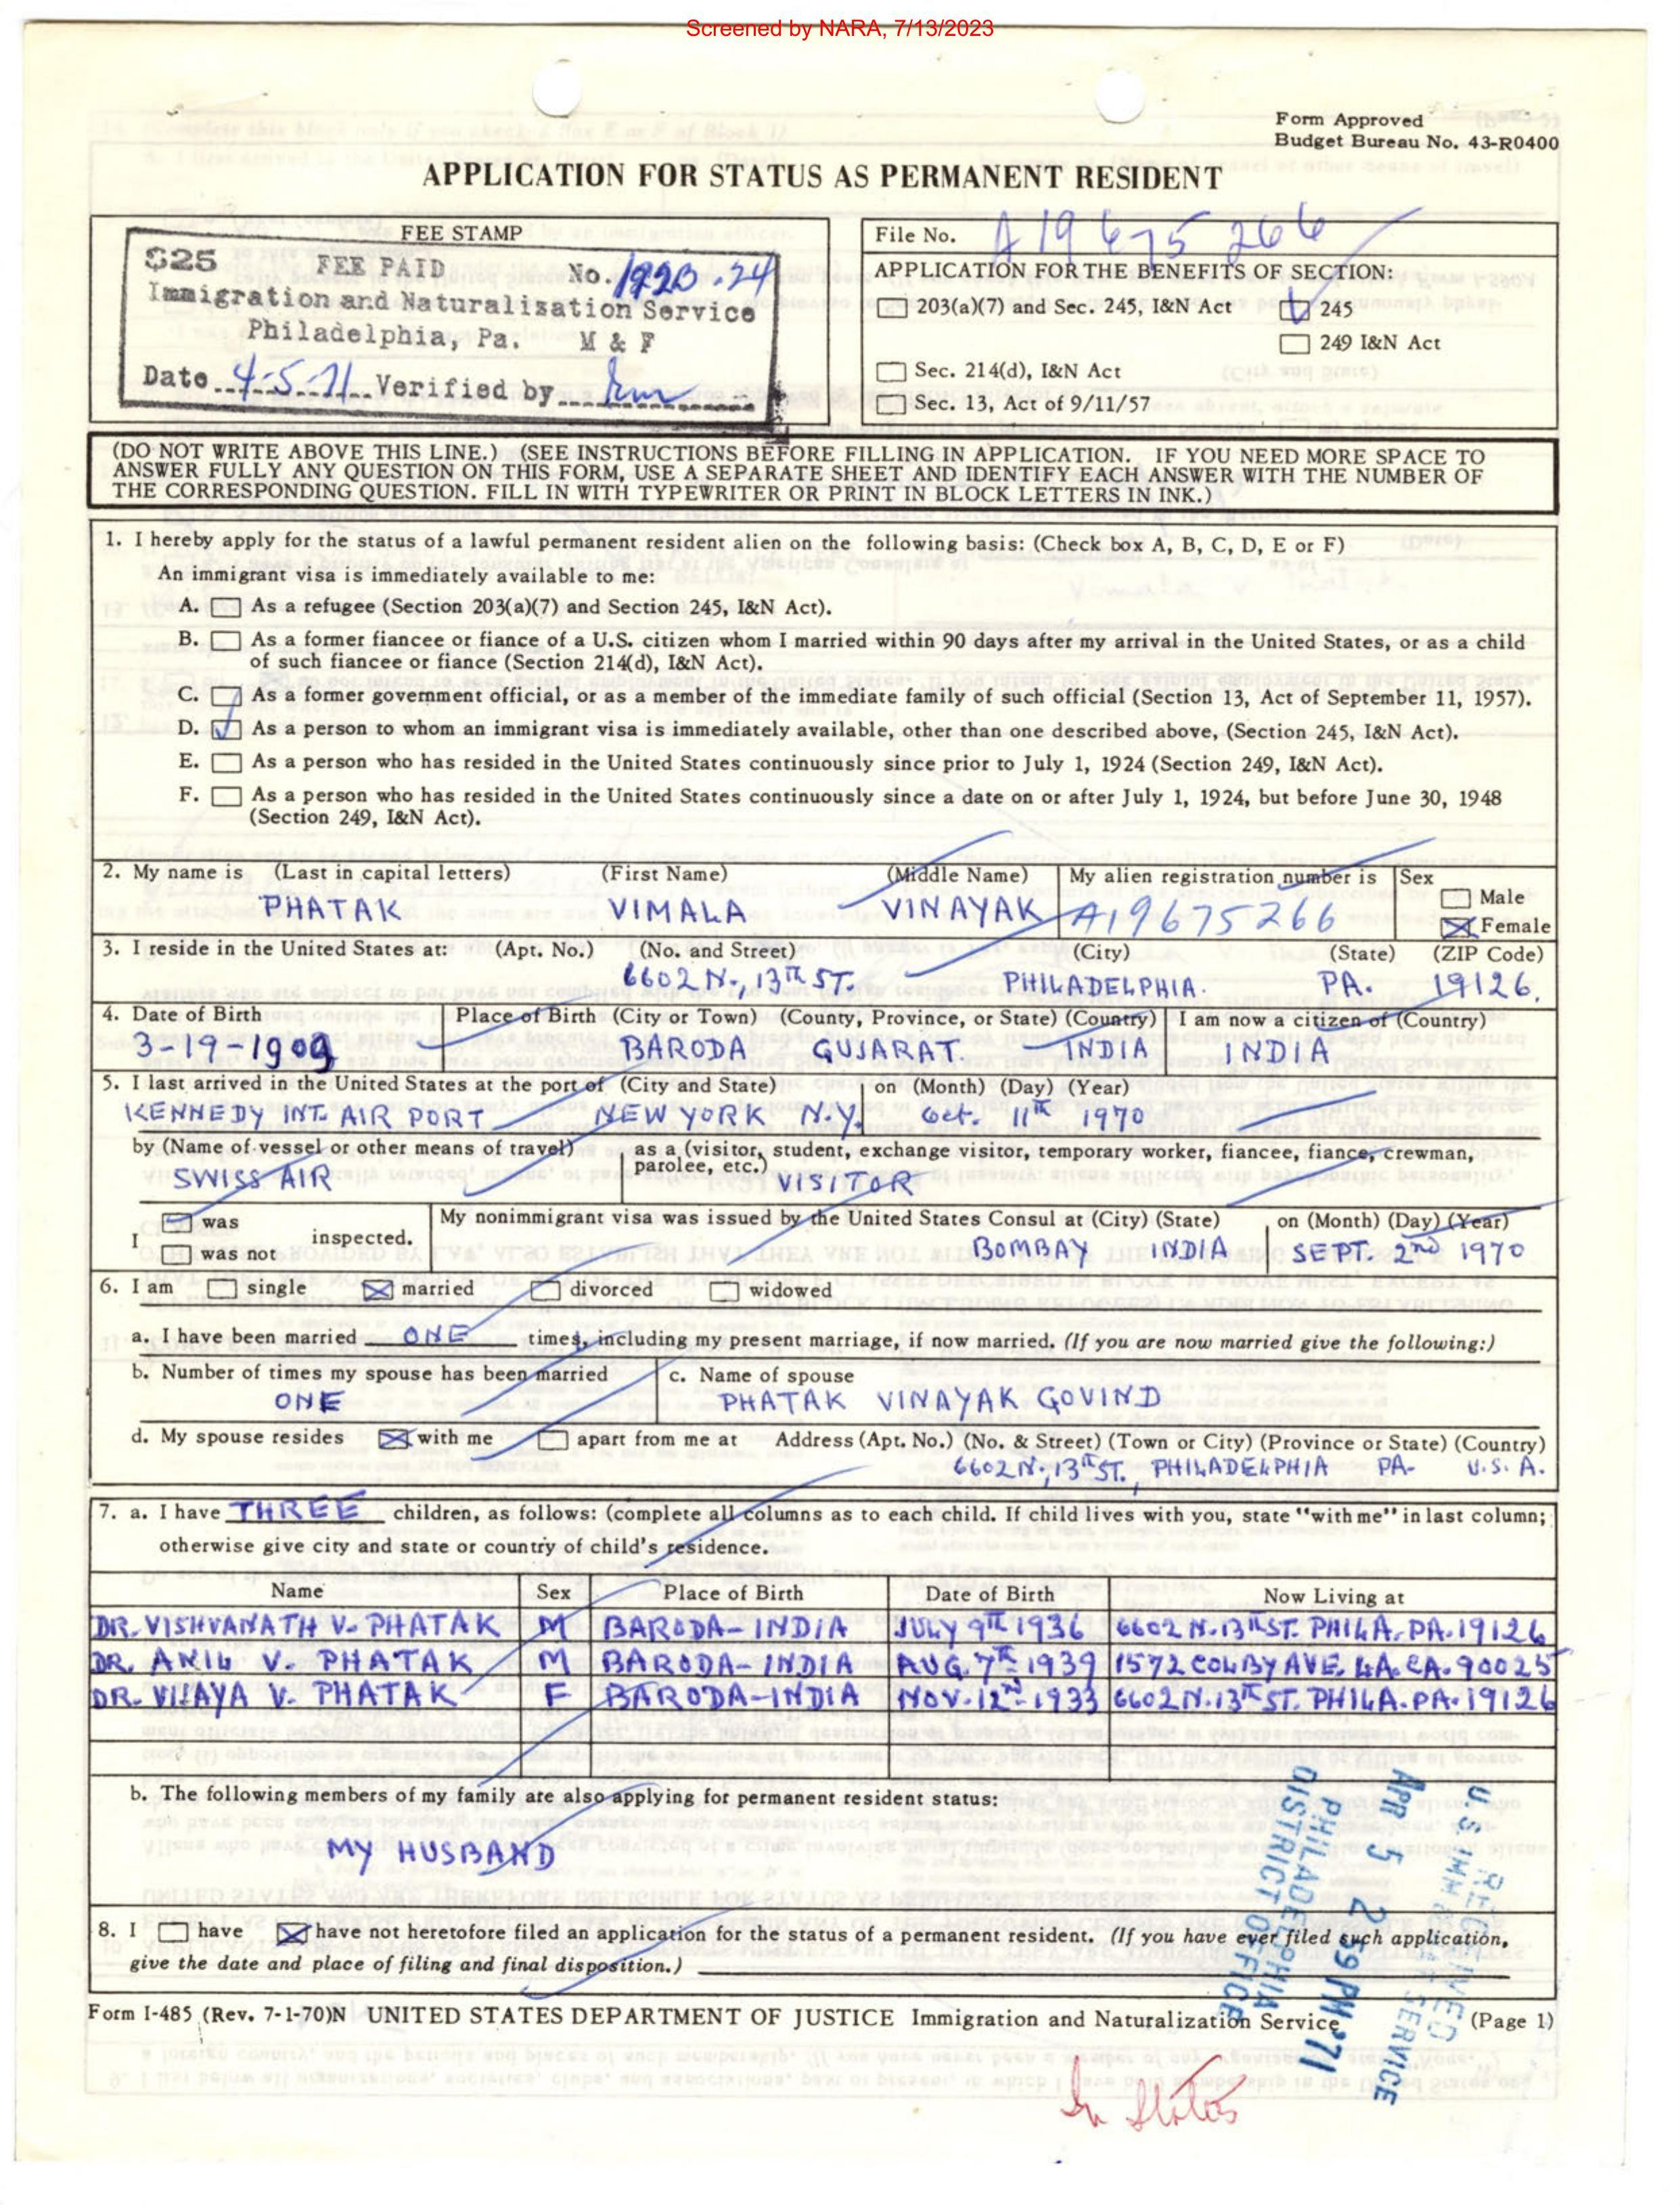 Screened by NARA, 7/13/2023
Form Approved
Budget Bureau No. 43-R0400
APPLICATION FOR STATUS AS PERMANENT RESIDENT
FEE STAMP
$25 FEE PAID No.
Immigration and Naturalization Service
Philadelphia, Pa. M & F
Date 4-5-71 Verified by
File No. A19 675 266
APPLICATION FOR THE BENEFITS OF SECTION:
203(a)(7) and Sec. 245, I&N Act 245
249 I&N Act
Sec. 214(d), I&N Act
Sec. 13, Act of 9/11/57
(DO NOT WRITE ABOVE THIS LINE.) (SEE INSTRUCTIONS BEFORE FILLING IN APPLICATION. IF YOU NEED MORE SPACE TO
ANSWER FULLY ANY QUESTION ON THIS FORM, USE A SEPARATE SHEET AND IDENTIFY EACH ANSWER WITH THE NUMBER OF
THE CORRESPONDING QUESTION. FILL IN WITH TYPEWRITER OR PRINT IN BLOCK LETTERS IN INK.)
1. I hereby apply for the status of a lawful permanent resident alien on the following basis: (Check box A, B, C, D, E or F)
An immigrant visa is immediately available to me:
A. As a refugee (Section 203(a)(7) and Section 245, I&N Act).
B. As a former fiancee or fiance of a U.S. citizen whom I married within 90 days after my arrival in the United States, or as a child
of such fiancee or fiance (Section 214(d), I&N Act).
C. As a former government official, or as a member of the immediate family of such official (Section 13, Act of September 11, 1957).
D. As a person to whom an immigrant visa is immediately available, other than one described above, (Section 245, I&N Act).
E. As a person who has resided in the United States continuously since prior to July 1, 1924 (Section 249, I&N Act).
F. As a person who has resided in the United States continuously since a date on or after July 1, 1924, but before June 30, 1948
(Section 249, I&N Act).
2. My name is (Last in capital letters) (First Name) (Middle Name) My alien registration number is Sex
Male
PHATAK VIMALA VINAYAK A19675266
Female
3. I reside in the United States at: (Apt. No.) (No. and Street) (City) (State) (ZIP Code)
6602 N., 13TH ST. PHILADELPHIA. PA. 19126.
4. Date of Birth Place of Birth (City or Town) (County, Province, or State) (Country) I am now a citizen of (Country)
3-19-1909 BARODA GUJARAT. INDIA INDIA
5. I last arrived in the United States at the port of (City and State) on (Month) (Day) (Year)
KENNEDY INT. AIR PORT NEW YORK N.Y. Oct. 11th 1970
by (Name of vessel or other means of travel) as a (visitor, student, exchange visitor, temporary worker, fiancee, fiance, crewman,
parolee, etc.)
SWISS AIR VISITOR
My nonimmigrant visa was issued by the United States Consul at (City) (State) on (Month) (Day) (Year)
was
I inspected.
was not
BOMBAY INDIA SEPT. 2ND 1970
6. I am single married divorced widowed
a. I have been married ONE times, including my present marriage, if now married. (If you are now married give the following:)
b. Number of times my spouse has been married c. Name of spouse
ONE PHATAK VINAYAK GOVIND
d. My spouse resides with me apart from me at Address (Apt. No.) (No. & Street) (Town or City) (Province or State) (Country)
6602 N., 13TH ST., PHILADELPHIA PA- U.S.A.
7. a. I have THREE children, as follows: (complete all columns as to each child. If child lives with you, state "with me" in last column;
otherwise give city and state or country of child's residence.
Name Sex Place of Birth Date of Birth Now Living at
DR. VISHVANATH V. PHATAK M BARODA-INDIA JULY 9TH 1936 6602 N. 13TH ST. PHILA. PA. 19126
DR. ANIL V. PHATAK M BARODA-INDIA AUG. 7TH 1939 1572 COLBY AVE. LA. CA. 90025
DR. VIJAYA V. PHATAK F BARODA-INDIA NOV. 12ND-1933 6602 N. 13TH ST. PHILA. PA. 19126
b. The following members of my family are also applying for permanent resident status:
MY HUSBAND
8. I have have not heretofore filed an application for the status of a permanent resident. (If you have ever filed such application,
give the date and place of filing and final disposition.)
RECEIVED
U.S. IMM & SERVICE
APR 5 2 59 PM '71
PHILADELPHIA
DISTRICT OFFICE
Form I-485 (Rev. 7-1-70)N UNITED STATES DEPARTMENT OF JUSTICE Immigration and Naturalization Service (Page 1)
In Status